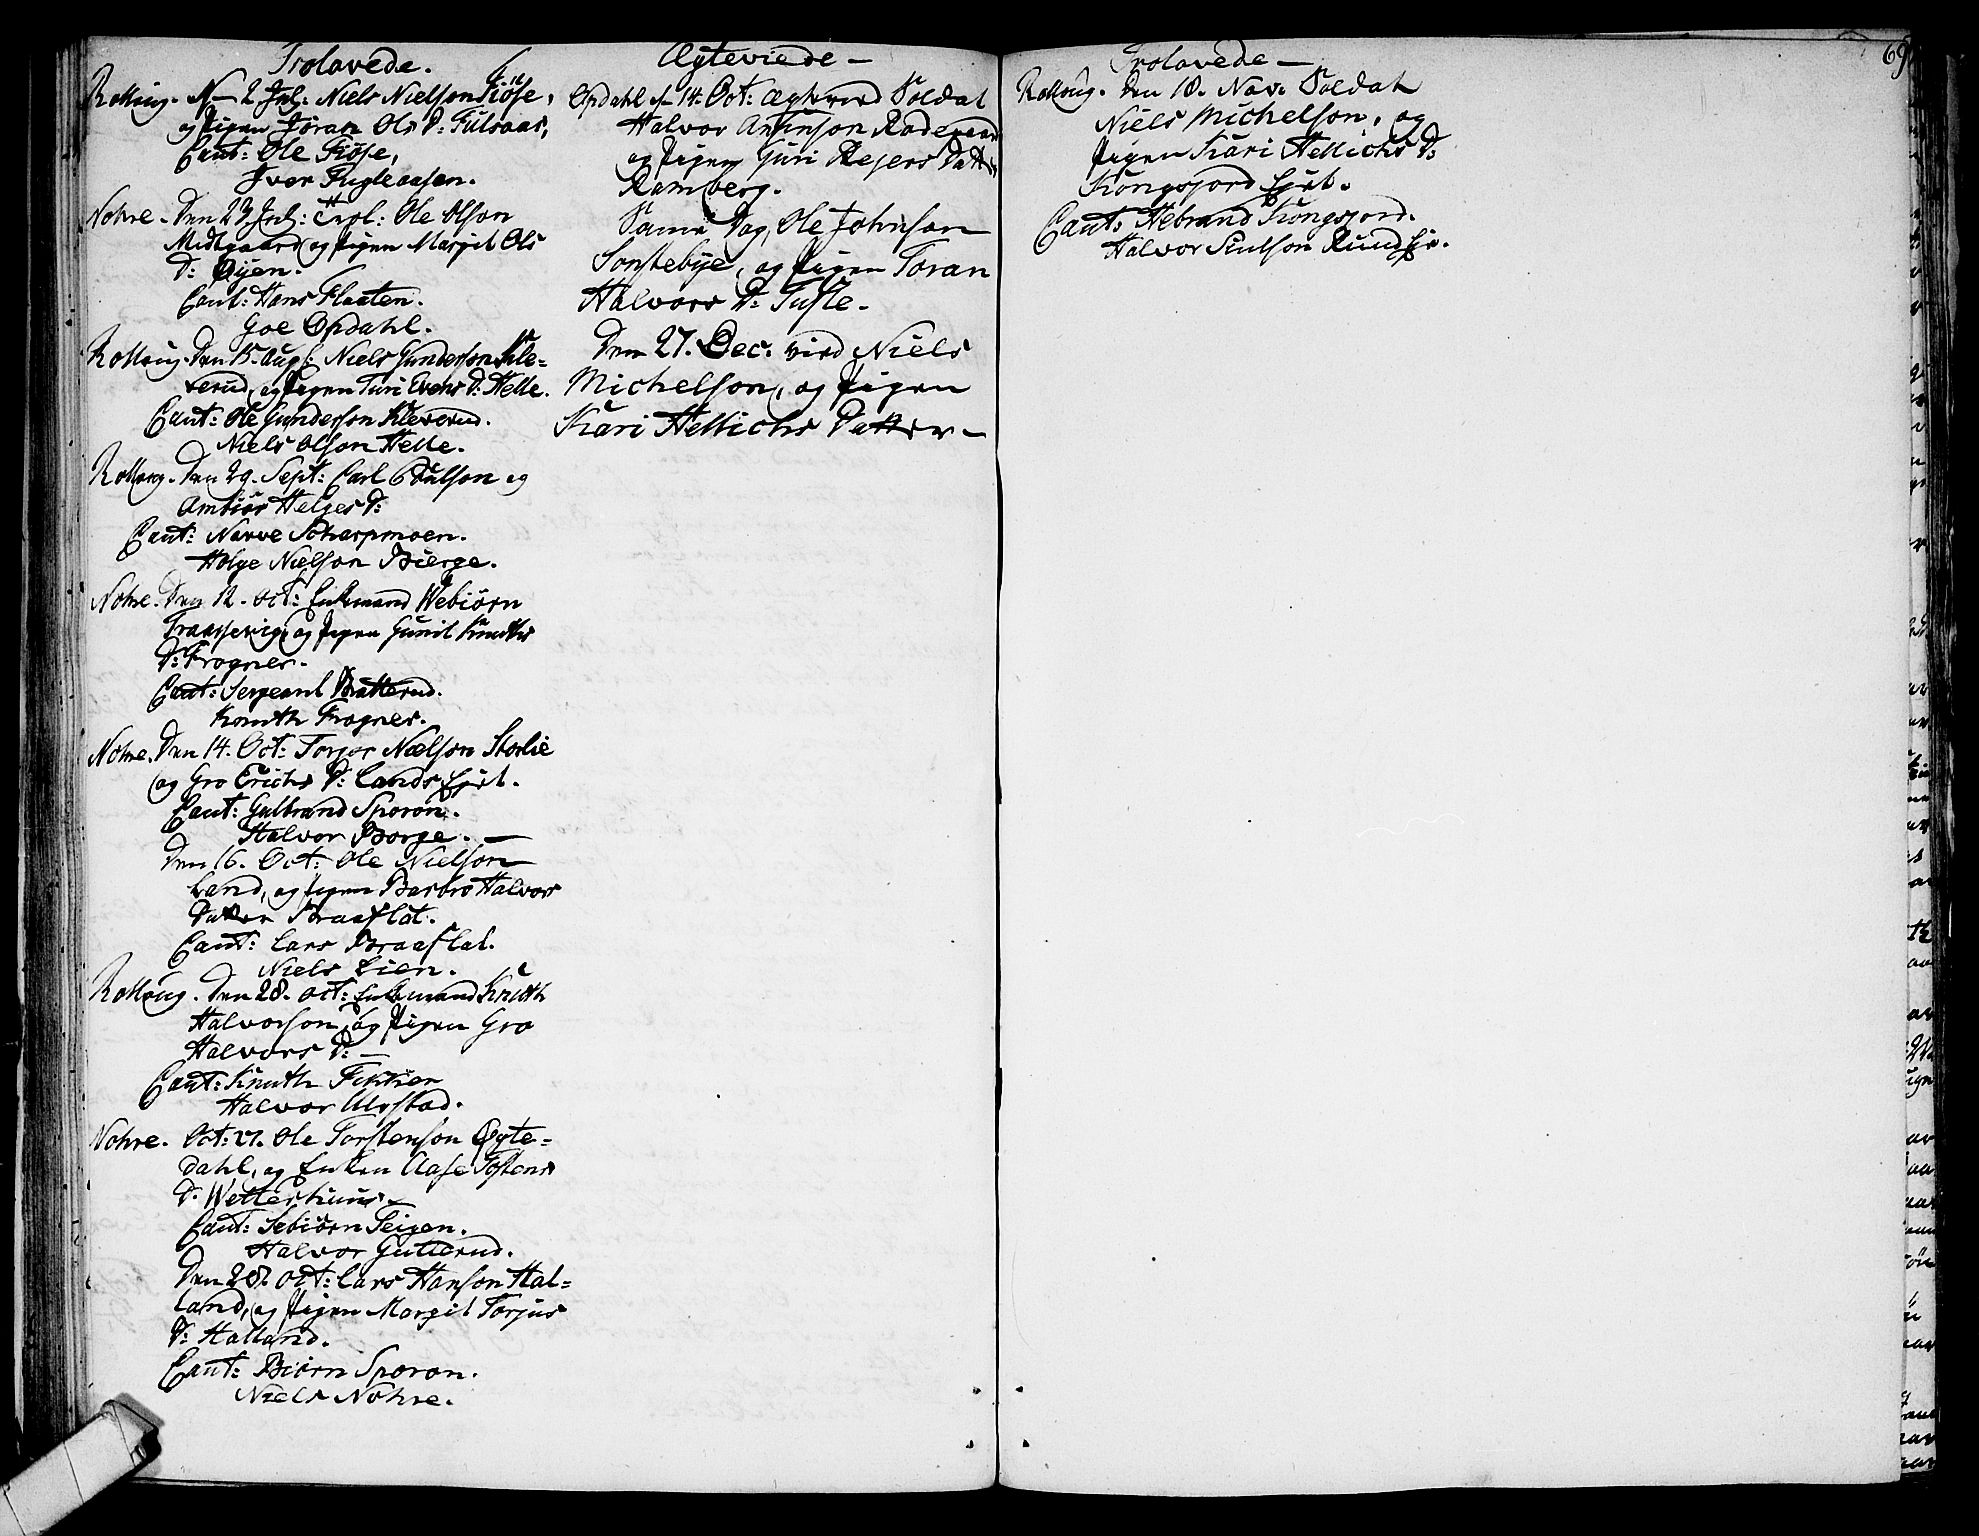 Trolovede.
Rolloug. d 2 Jul: Niels Nielsson Kiöse,
og Pigen Jöran Ols D: Fulsaas,
Caut: Ole Kiöse,
Iver Fugleaasen.
Nohre. Den 23 Jul: Trol: Ole Olson
Midtgaard og Pigen Margit Ols
D: Öyen.
Caut: Hans Flaaten.
Goe Opdahl.
Rolloug. Den 15. Aug: Niels Gunderson Kle=
verud, og Pigen Turi Evens D: Helle.
Caut: Ole Gunderson Kleverud.
Niels Olson Helle.
Rolloug. Den 29. Sept: Carl Poulson og
Ambiör Helges D:
Caut: Narve Scharpmoen.
Holge Nielson Bierge.
Nohre. Den 12. Oct: Enkemand Webiörn
og Pigen Gunil Knuths
D: Frogner.
Caut: Sergeant Bratterud.
Knuth Frogner.
Nohre. Den 14. Oct: Torger Nielson Storlie
og Gro Erichs D: Lands Ejet.
Caut: Gulbrand Sporon.
Halvor Borge. —
Den 16. Oct: Ole Nielson
Land, og Pigen Barbro Halvors
Datter Braaflat.
Caut: Lars Braaflat.
Niels Lien.
Rolloug. Den 28. Oct: Enkemand Knuth
Halvorson, og Pigen Gro
Halvors D: —
Caut: Knuth
Halvor Ulvstad.
Nohre. Oct: 27. Ole Torstenson Ögte=
dahl, og Enken Aase Tostens
D: Wetterhuus —
Caut: Sebiörn Teigen.
Halvor Gutterud.
Den 28. Oct: Lars Hanson Hal=
land, og Pigen Margit Torjus
D: Halland.
Caut: Biörn Sporon.
Niels Nohre.
Ægteviede —
Opdahl d 14. Oct: Ægteviid Soldat
Halvor Anfinson Rodegaard
og Pigen Guri Rejers Datter
Ramberg.
Samme Dag, Ole Johnson
Sonstebye, og Pigen Toran
Halvors D: Tufte.
Den 27. Dec. vied Niels
Michelson, og Pigen
Kari Hellichs Datter —
Trolovede —
69
Rolloug. Den 18. Nov. Soldat
Niels Michelson, og
Pigen Kari Hellichs D:
Kongsjord Ejet.
Caut: Hebrand Kongsjord.
Halvor Siulson Ruud Eje.